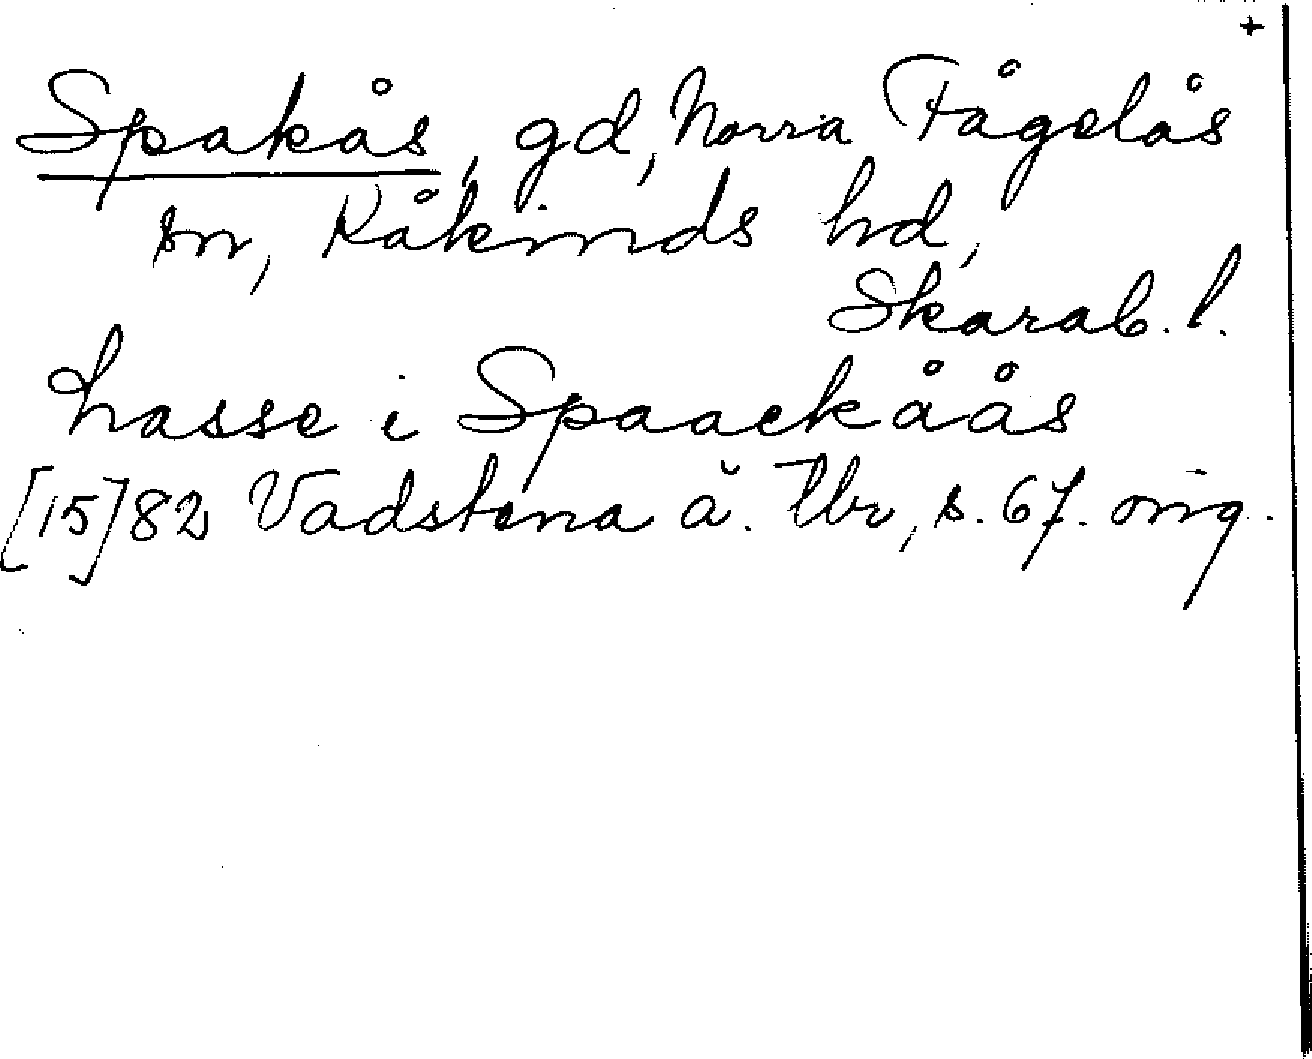 +
Spakås, gd, Norra Fågelås
sn, Kåkinds hd,
Skarab. l.
Lasse i Spaackåås
[15]82 Vadstena ä. Tbr, s. 67. orig.